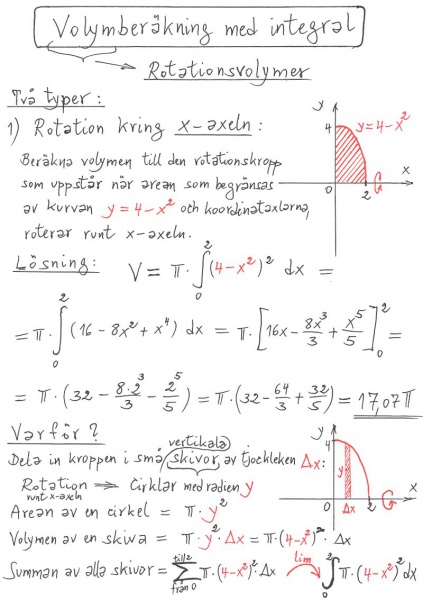 Volymberäkning med integral
Rotationsvolymer
Två typer:
1) Rotation kring x-axeln:
Beräkna volymen till den rotationskropp
som uppstår när arean som begränsas
av kurvan y = 4-x² och koordinataxlarna,
roterar runt x-axeln.
y
4
y=4-x²
0
2
x
Lösning: V = π·∫₀² (4-x²)² dx =
= π·∫₀² (16-8x²+x⁴) dx = π·[16x - 8x³/3 + x⁵/5]₀² =
= π·(32 - 8·2³/3 - 2⁵/5) = π·(32 - 64/3 + 32/5) = 17,07π
Varför?
vertikala
Dela in kroppen i små skivor, av tjockleken Δx:
Rotation runt x-axeln ⇒ Cirklar med radien y
Arean av en cirkel = π·y²
Volymen av en skiva = π·y²·Δx = π·(4-x²)²·Δx
Summan av alla skivor = ∑ från 0 till 2 π·(4-x²)²·Δx lim ∫₀² π·(4-x²)² dx
y
4
y
0
Δx
2
x